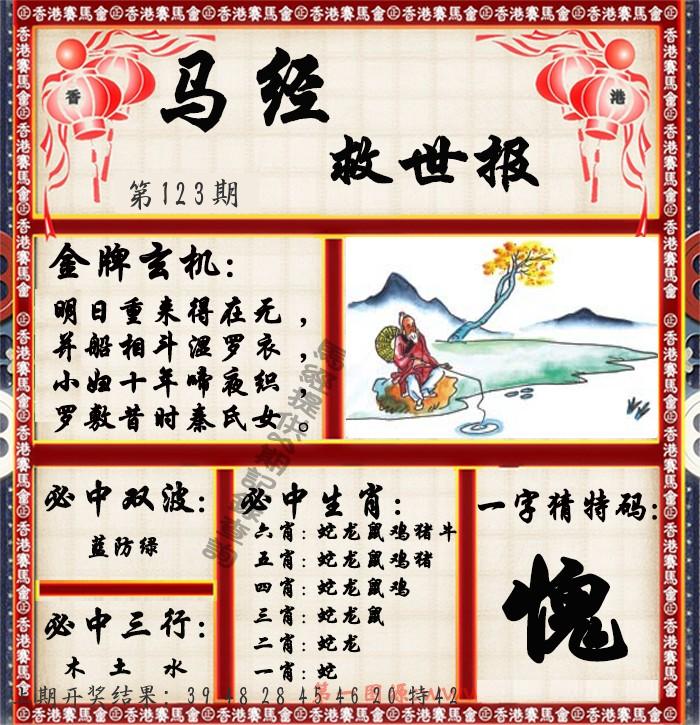 香港賽馬會
香
港
马经
救世报
第123期
金牌玄机：
明日重来得在无，
并船相斗湿罗衣，
小妇十年啼夜织，
罗敷昔时秦氏女。
必中双波：
蓝防绿
必中三行：
木 土 水
必中生肖：
六肖：蛇龙鼠鸡猪牛
五肖：蛇龙鼠鸡猪
四肖：蛇龙鼠鸡
三肖：蛇龙鼠
二肖：蛇龙
一肖：蛇
一字猜特码：
愧
期开奖结果：39 48 28 45 46 20 特42
第一图源